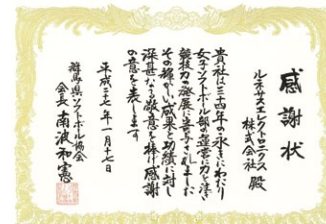 感謝状
ルネサスエレクトロニクス
株式会社 殿
貴社は三十四年の永きにわたり
女子ソフトボール部の運営に力を注ぎ
競技力の発展に寄与されました
その輝かしい成果と功績に対し
深甚なる敬意を捧げ感謝
の意を表します
平成二十七年一月十七日
群馬県ソフトボール協会
会長 南波和憲